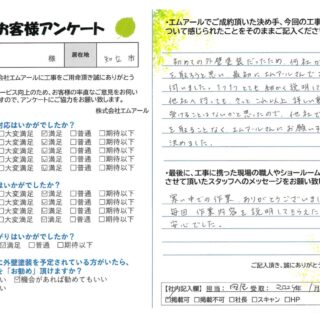 お客様アンケート
様 居住地 知立市
株式会社エムアールに工事をご用命頂き誠にありがとう
サービス向上のため、お客様の率直なご意見をお伺い
ますので、アンケートにご協力をお願い致します。
株式会社エムアール
対応はいかがでしたか?
□大変満足 ☑満足 □普通 □期待以下
□大変満足 ☑満足 □普通 □期待以下
□大変満足 ☑満足 □普通 □期待以下
□大変満足 ☑満足 □普通 □期待以下
はいかがでしたか?
□大変満足 ☑満足 □普通 □期待以下
□大変満足 ☑満足 □普通 □期待以下
□大変満足 ☑満足 □普通 □期待以下
がりはいかがでしたか?
☑満足 □普通 □期待以下
に外壁塗装を予定されている方がいたら、
を「お勧め」頂けますか?
い ☑機会があれば勧めてもいい
・エムアールでご成約頂いた決め手、今回の工事
ついて感じられたことをそのままご記入ください
初めての外壁塗装だったため、何社か
を取ろうと思い、最初にエムアールさん
伺いました。1つ1つとても細かく説明して
他社へ行っても、きっとこれ以上 詳しい
受けることはないかと思ったので、他社で
を取ることなく エムアールさんにお願い
決めました。
・最後に、工事に携った現場の職人やショールーム
させて頂いたスタッフへのメッセージをお願い致
寒い中での作業 ありがとうございました
毎回 作業内容を説明してもらえた
安心でした。
ご記入頂き、誠にありがとう
【社内記入欄】 担当: 受取: 2024年 1月
☑掲載可 □掲載不可 □社長 □スキャン □HP